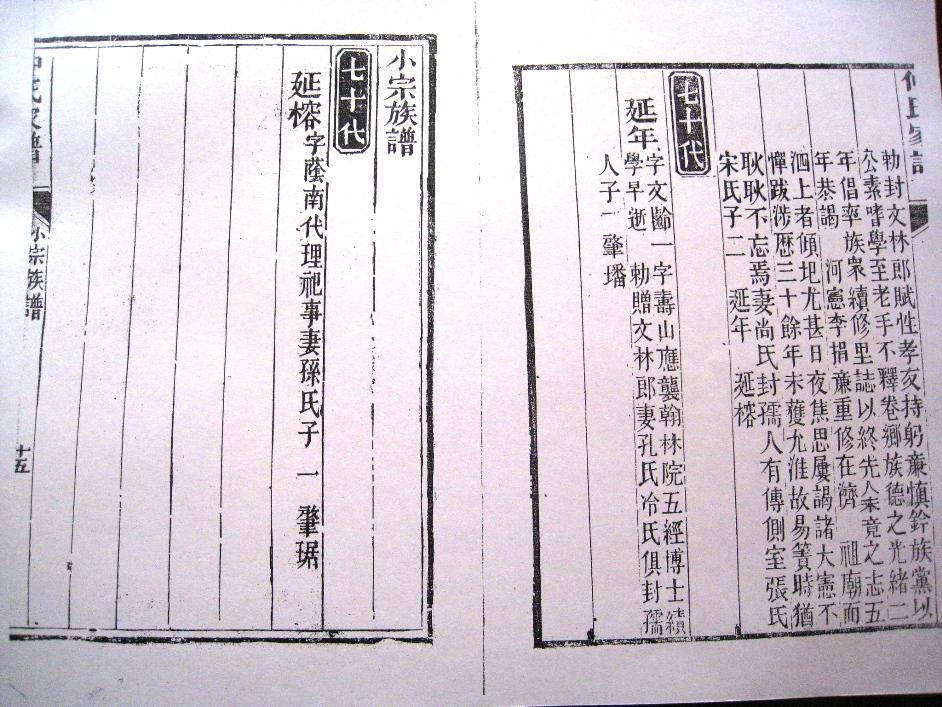 氏家譜
勅封文林郎賦性孝友持躬廉慎鈐族黨以
公素嗜學至老手不釋卷鄉族德之光緒二
年倡率族衆續修里誌以終先人未竟之志五
年恭謁 河憲李捐廉重修在濟 祖廟而
泗上者傾圯尤甚日夜焦思屢謁諸大憲不
憚跋涉歷三十餘年未獲允准故易簀時猶
耿耿不忘焉妻尚氏封孺人有傳側室張氏
宋氏子二 延年 延榕
七十代
延年
字文齡一字壽山應襲翰林院五經博士績
學早逝 勅贈文林郎妻孔氏冷氏俱封孺
人子一 肇璠
小宗族譜
七十代
延榕字蔭南代理祀事妻孫氏子 一 肇琚
氏家譜
小宗族譜
十五